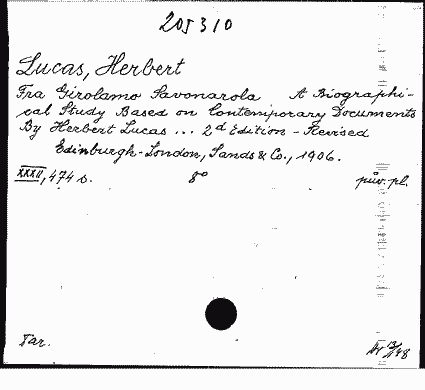 205310
Lucas, Herbert
Fra Girolamo Savonarola A Biographi-
cal Study Based on Contemporary Documents
By Herbert Lucas ... 2d Edition - Revised
Edinburgh-London, Sands & Co., 1906.
XXXII, 474 s. 8° pův. pl.
Tar.